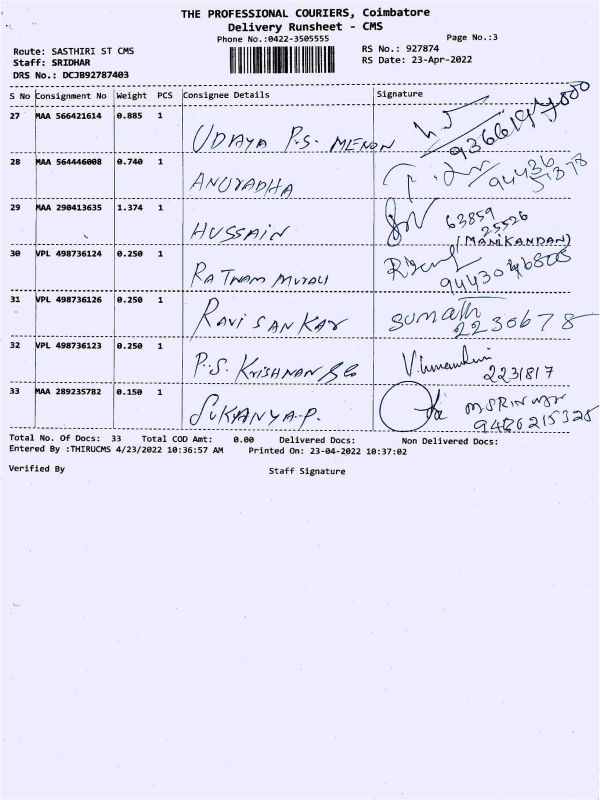 THE PROFESSIONAL COURIERS, Coimbatore
Delivery Runsheet - CMS
Phone No.:0422-3505555
Page No.:3
Route: SASTHIRI ST CMS
RS No.: 927874
Staff: SRIDHAR
RS Date: 23-Apr-2022
DRS No.: DCJB92787403
S No Consignment No Weight PCS Consignee Details Signature
27 MAA 566421614 0.885 1 UDAYA P.S. MENON
28 MAA 564446008 0.740 1 ANURADHA
29 MAA 290413635 1.374 1 HUSSAIN 63859
25526
(MANIKANDAN)
30 VPL 498736124 0.250 1 RATNAM MURALI
31 VPL 498736126 0.250 1 RAVISANKAR sumathi
2230678
32 VPL 498736123 0.250 1 P.S. KRISHNAN & Co
2231817
33 MAA 289235782 0.150 1 SUKANYA.P.
Total No. Of Docs: 33 Total COD Amt: 0.00 Delivered Docs: Non Delivered Docs:
Entered By :THIRUCMS 4/23/2022 10:36:57 AM Printed On: 23-04-2022 10:37:02
Verified By Staff Signature